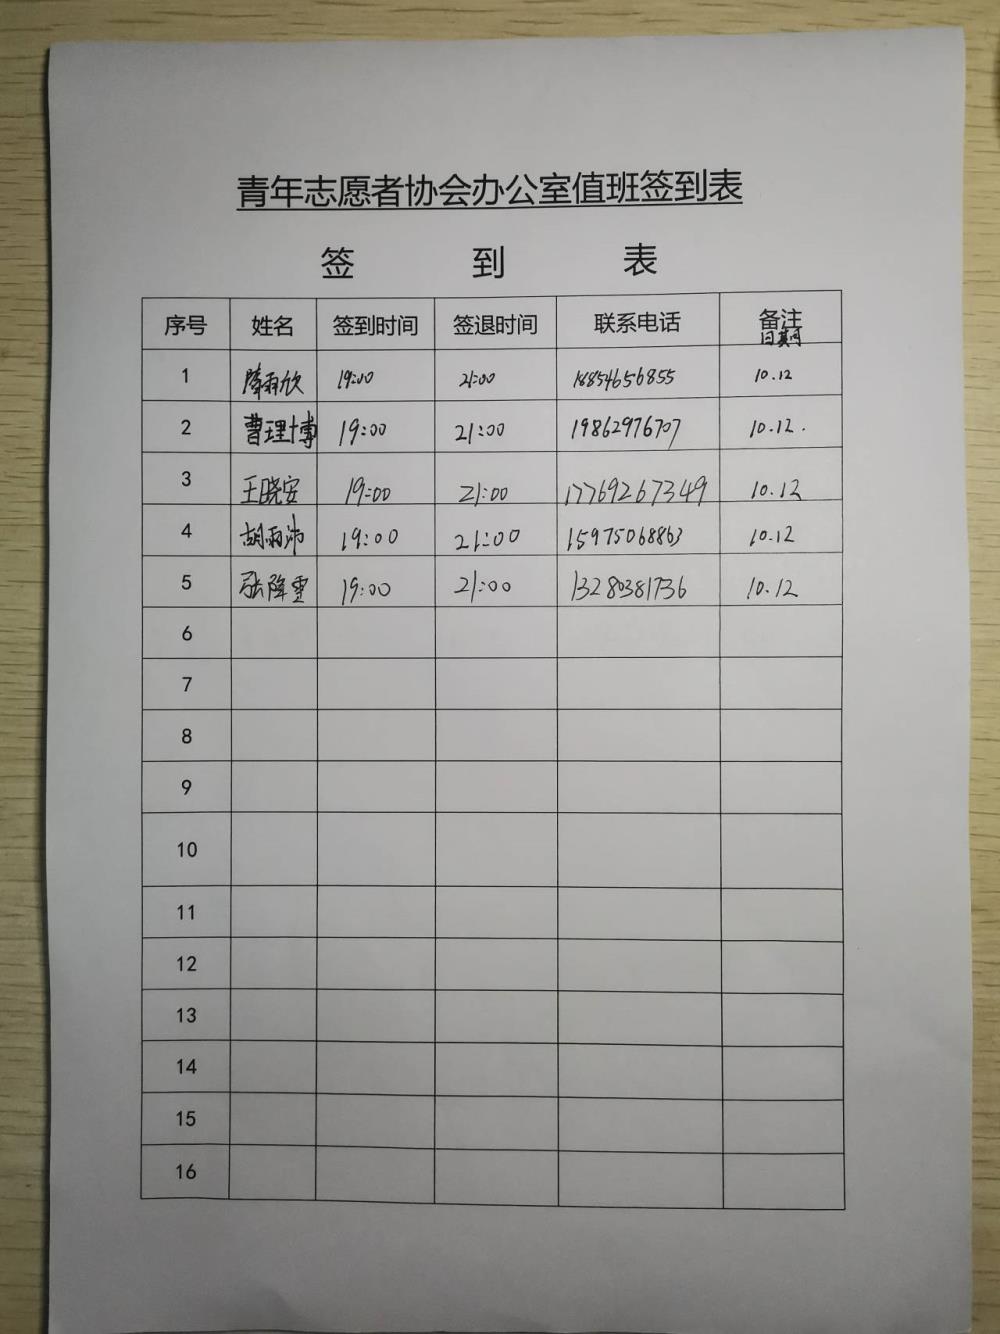 青年志愿者协会办公室值班签到表
签 到 表
序号 姓名 签到时间 签退时间 联系电话 备注
日期
1 隋雨欣 19:00 21:00 18854656855 10.12
2 曹理博 19:00 21:00 19862976707 10.12.
3 王晓安 19:00 21:00 17769267349 10.12
4 胡雨沛 19:00 21:00 15975068863 10.12
5 张降雪 19:00 21:00 13280381736 10.12
6
7
8
9
10
11
12
13
14
15
16